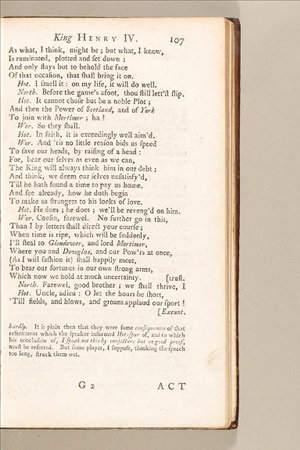 King HENRY IV. 107
As what, I think, might be; but what, I know,
Is ruminated, plotted and set down;
And only stays but to behold the face
Of that occasion, that shall bring it on.
Hot. I smell it: on my life, it will do well.
North. Before the game's afoot, thou still lett'st slip.
Hot. It cannot chuse but be a noble Plot;
And then the Power of Scotland, and of York
To join with Mortimer; ha!
Wor. So they shall.
Hot. In faith, it is exceedingly well aim'd.
Wor. And 'tis no little reason bids us speed
To save our heads, by raising of a head:
For, bear our selves as even as we can,
The King will always think him in our debt;
And think, we deem our selves unsatisfy'd,
Till he hath found a time to pay us home.
And see already, how he doth begin
To make us strangers to his looks of love.
Hot. He does; he does; we'll be reveng'd on him.
Wor. Cousin, farewel. No further go in this,
Than I by letters shall direct your course;
When time is ripe, which will be suddenly,
I'll steal to Glendower, and lord Mortimer,
Where you and Douglas, and our Pow'rs at once,
(As I will fashion it) shall happily meet,
To bear our fortunes in our own strong arms,
Which now we hold at much uncertainty. [trust.
North. Farewel, good brother; we shall thrive, I
Hot. Uncle, adieu: O let the hours be short,
'Till fields, and blows, and groans applaud our sport!
[Exeunt.
hardly. It is plain then that they were some consequences of that
resentment which the speaker informed Hot-spur of, and to which
his conclusion of, I speak not this by conjecture but on good proof,
must be referred. But some player, I suppose, thinking the speech
too long, struck them out.
G 2 ACT